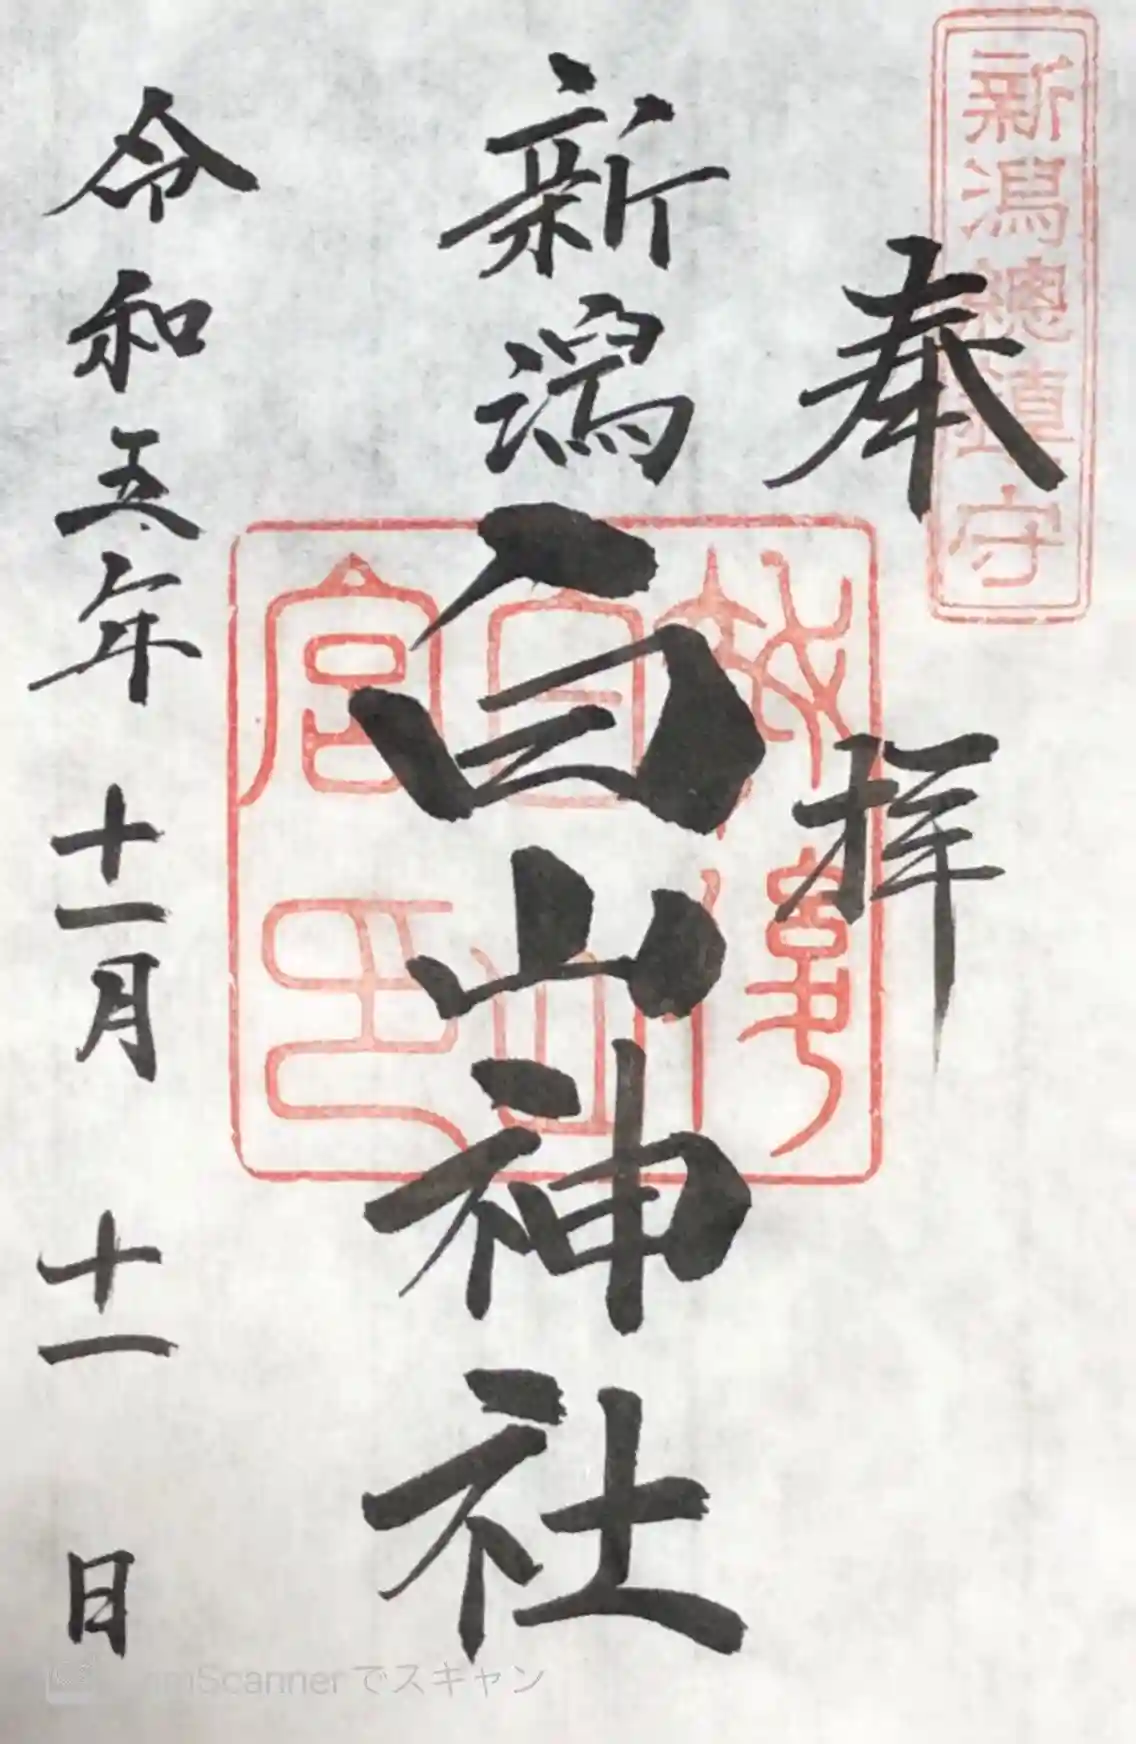 新潟總鎮守
奉拝
新潟白山神社
白山
宮印
令和五年 十一月 十一日
CamScannerでスキャン